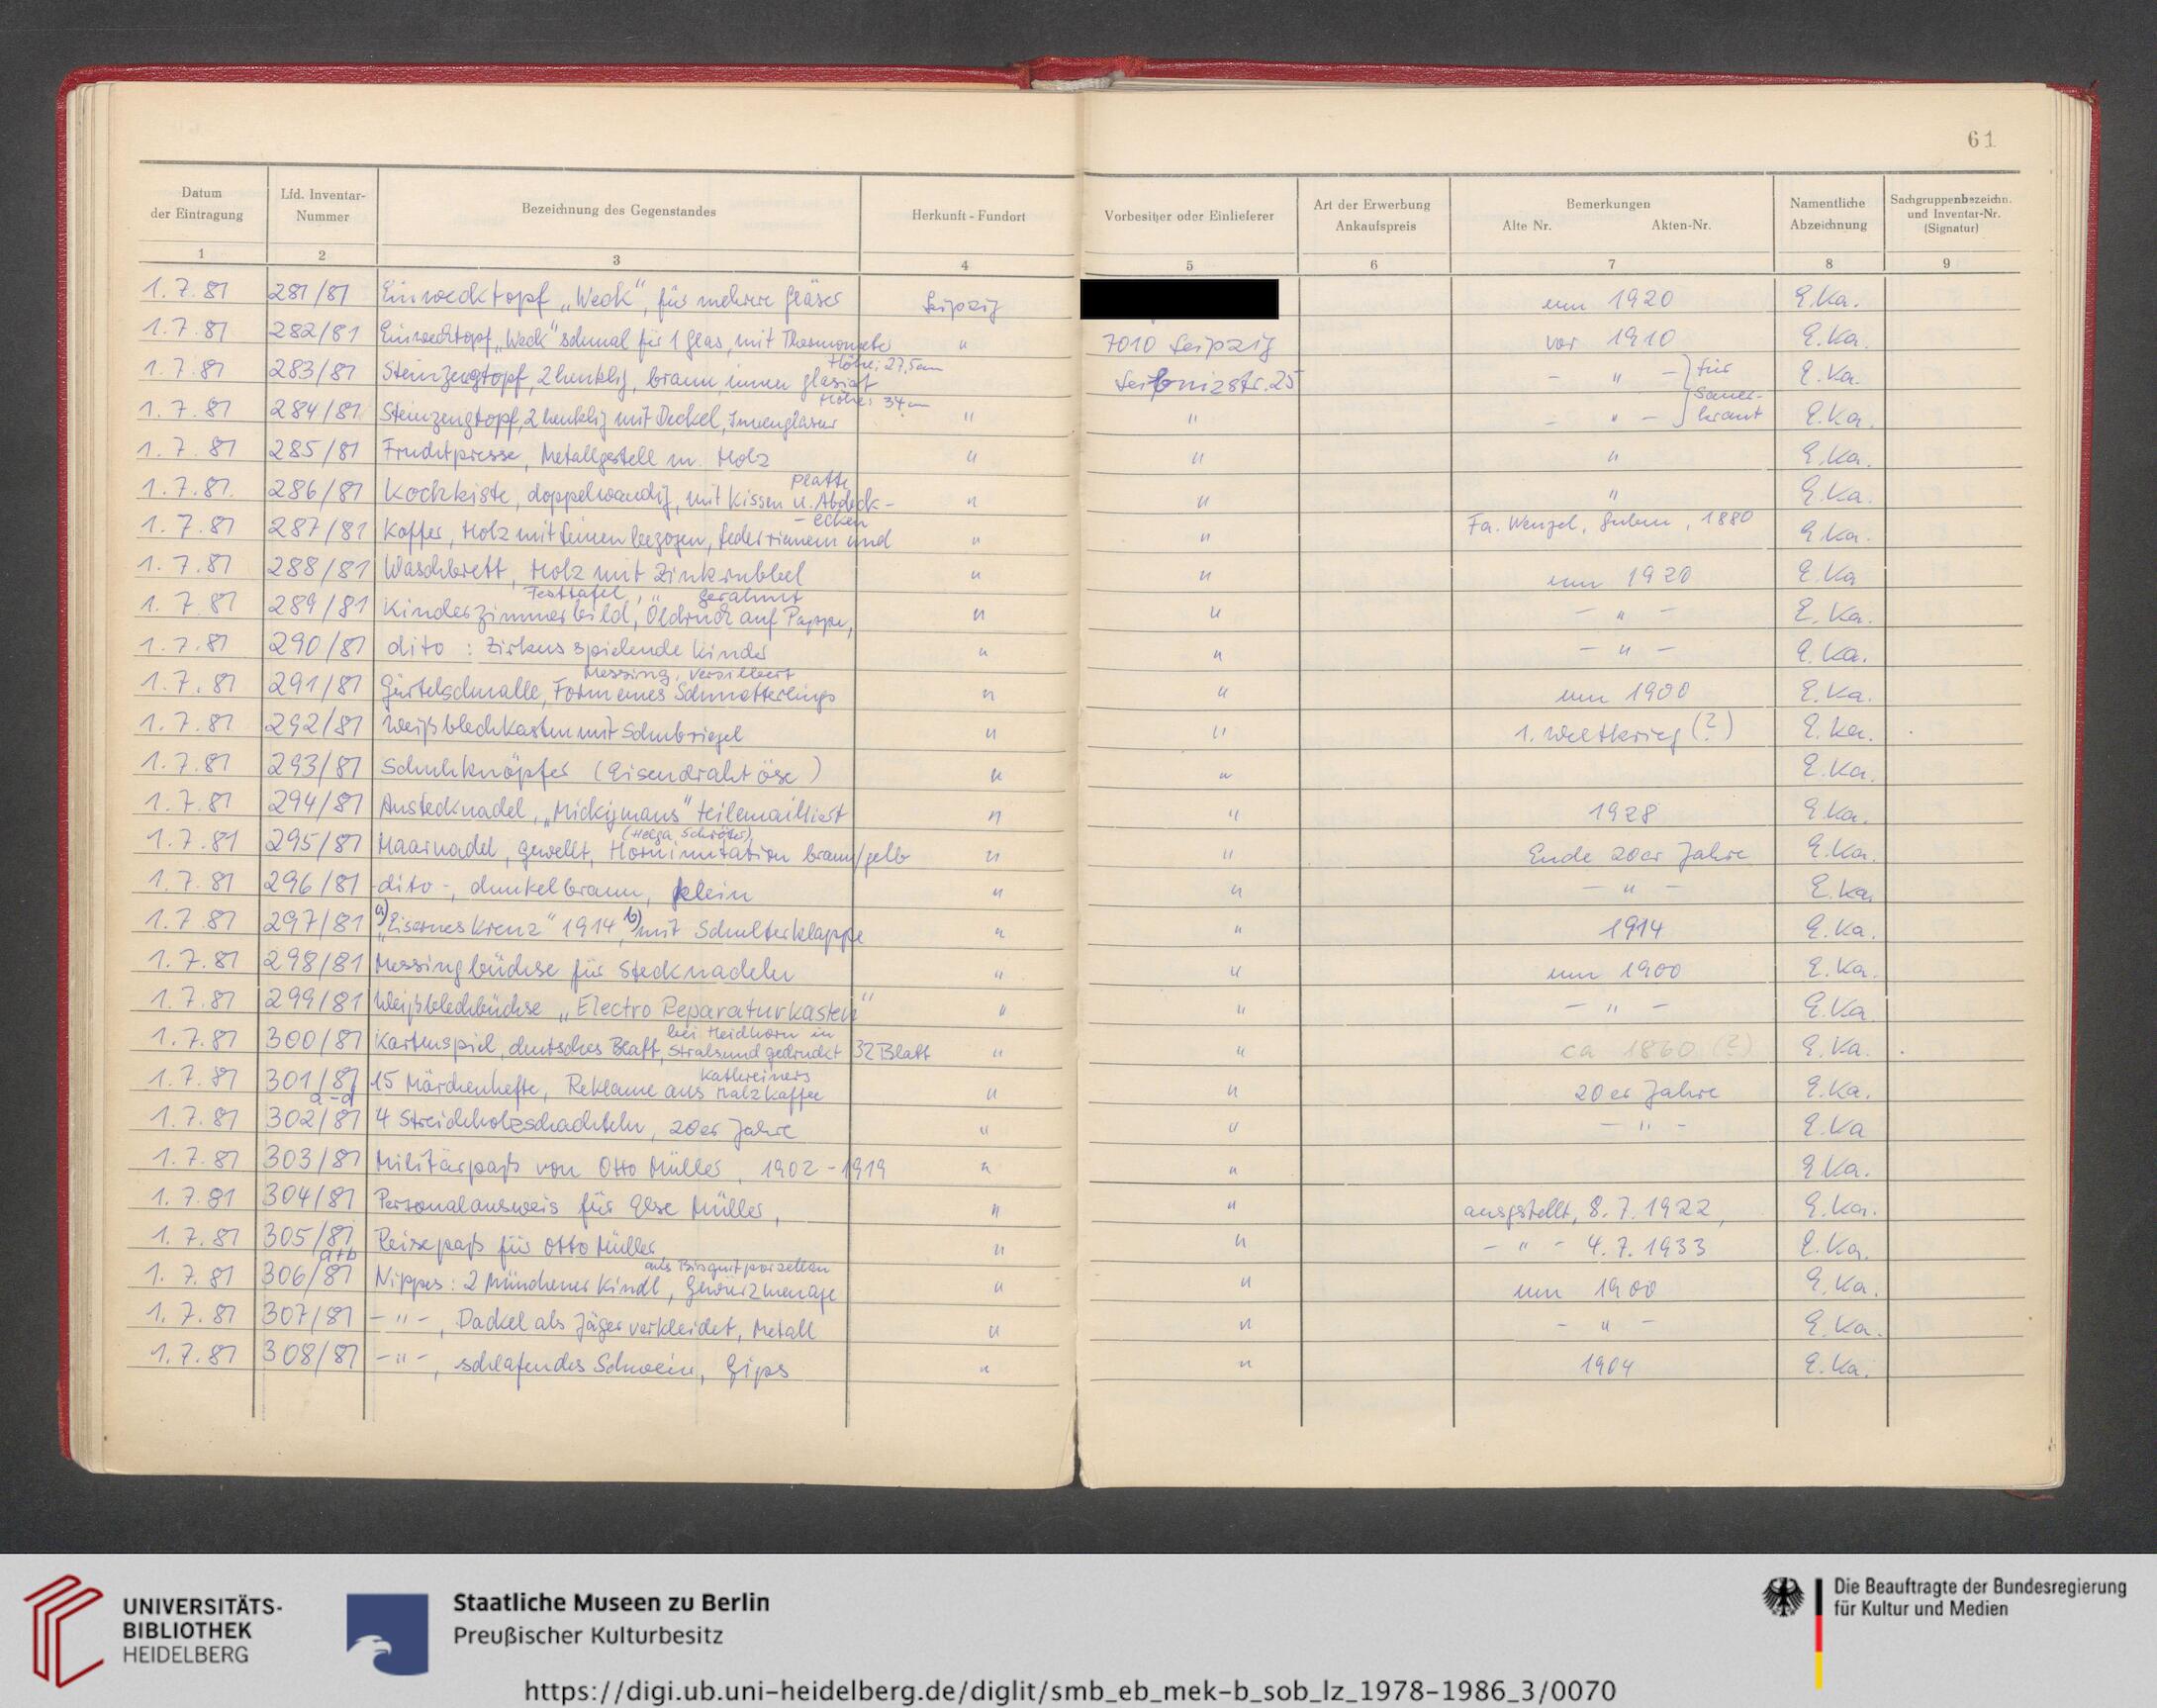 61
Datum der Eintragung | Lfd. Inventar-Nummer | Bezeichnung des Gegenstandes | Herkunft - Fundort | Vorbesitzer oder Einlieferer | Art der Erwerbung Ankaufspreis | Bemerkungen Alte Nr. Akten-Nr. | Namentliche Abzeichnung | Sachgruppenbezeichn. und Inventar-Nr. (Signatur)
1 | 2 | 3 | 4 | 5 | 6 | 7 | 8 | 9
1.7.81 | 281/81 | Einwecktopf „Weck“, für mehrere Gläser | Leipzig | | | um 1920 | E.Ka.
1.7.81 | 282/81 | Einwecktopf „Weck“ schmal für 1 Glas, mit Thermometer | " | 7010 Leipzig | | vor 1910 | E.Ka.
1.7.81 | 283/81 | Steinzeugtopf, 2henklig, braun, innen glasiert Höhe: 27,5cm | | Leibnizstr. 25 | | - " - } für | E.Ka.
1.7.81 | 284/81 | Steinzeugtopf, 2henklig mit Deckel, Innenglasur Höhe: 34cm | " | " | | - " - } Sauerkraut | E.Ka.
1.7.81 | 285/81 | Fruchtpresse, Metallgestell m. Holz | " | " | | " | E.Ka.
1.7.81 | 286/81 | Kochkiste, doppelwandig, mit Kissen u. Abdeck-platte | " | " | | " | E.Ka.
1.7.81 | 287/81 | Koffer, Holz mit Leinen bezogen, Lederriemen und -ecken | " | " | | Fa. Wenzel, Guben, 1880 | E.Ka.
1.7.81 | 288/81 | Waschbrett, Holz mit Zinkrubbel | " | " | | um 1920 | E.Ka
1.7.81 | 289/81 | Kinderzimmerbild, Festtafel, Öldruck auf Pappe, gerahmt | " | " | | - " - | E.Ka.
1.7.81 | 290/81 | dito : Zirkus spielende Kinder | " | " | | - " - | E.Ka.
1.7.81 | 291/81 | Gürtelschnalle, Form eines Schmetterlings Messing, versilbert | " | " | | um 1900 | E.Ka.
1.7.81 | 292/81 | Weißblechkasten mit Schubriegel | " | " | | 1. Weltkrieg (?) | E.Ka.
1.7.81 | 293/81 | Schuhknöpfer (Eisendrahtöse) | " | " | | | E.Ka.
1.7.81 | 294/81 | Anstecknadel, „Mickymaus“ teilemailliert | " | " | | 1928 | E.Ka.
1.7.81 | 295/81 | Haarnadel, gewellt, Hornimitation braun/gelb (Helga Schröter) | " | " | | Ende 20er Jahre | E.Ka.
1.7.81 | 296/81 | -dito-, dunkelbraun, klein | " | " | | - " - | E.Ka.
1.7.81 | 297/81 | a) „Eisernes Kreuz“ 1914, b) mit Schulterklappe | " | " | | 1914 | E.Ka.
1.7.81 | 298/81 | Messingbüchse für Stecknadeln | " | " | | um 1900 | E.Ka.
1.7.81 | 299/81 | Weißblechbüchse „Electro Reparaturkasten“ | " | " | | - " - | E.Ka
1.7.81 | 300/81 | Kartenspiel, deutsches Blatt, bei Heidhorn in Stralsund gedruckt 32 Blatt | " | " | | ca 1860 (?) | E.Ka.
1.7.81 | 301/81 | 15 Märchenhefte, Reklame aus Kathreiners Malzkaffee | " | " | | 20er Jahre | E.Ka.
1.7.81 | 302/81 a-d | 4 Streichholzschachteln, 20er Jahre | " | " | | - " - | E.Ka
1.7.81 | 303/81 | Militärpaß von Otto Müller, 1902-1919 | " | " | | | E.Ka.
1.7.81 | 304/81 | Personalausweis für Else Müller, | " | " | | ausgestellt, 8.7.1922, | E.Ka.
1.7.81 | 305/81 | Reisepaß für Otto Müller, | " | " | | - " - 4.7.1933 | E.Ka.
1.7.81 | 306/81 a+b | Nippes: 2 Münchener Kindl, Gewürzmenage aus Bisquitporzellan | " | " | | um 1900 | E.Ka.
1.7.81 | 307/81 | - " -, Dackel als Jäger verkleidet, Metall | " | " | | - " - | E.Ka.
1.7.81 | 308/81 | - " -, schlafendes Schwein, Gips | " | " | | 1904 | E.Ka.
UNIVERSITÄTS-
BIBLIOTHEK
HEIDELBERG
Staatliche Museen zu Berlin
Preußischer Kulturbesitz
Die Beauftragte der Bundesregierung
für Kultur und Medien
https://digi.ub.uni-heidelberg.de/diglit/smb_eb_mek-b_sob_lz_1978-1986_3/0070